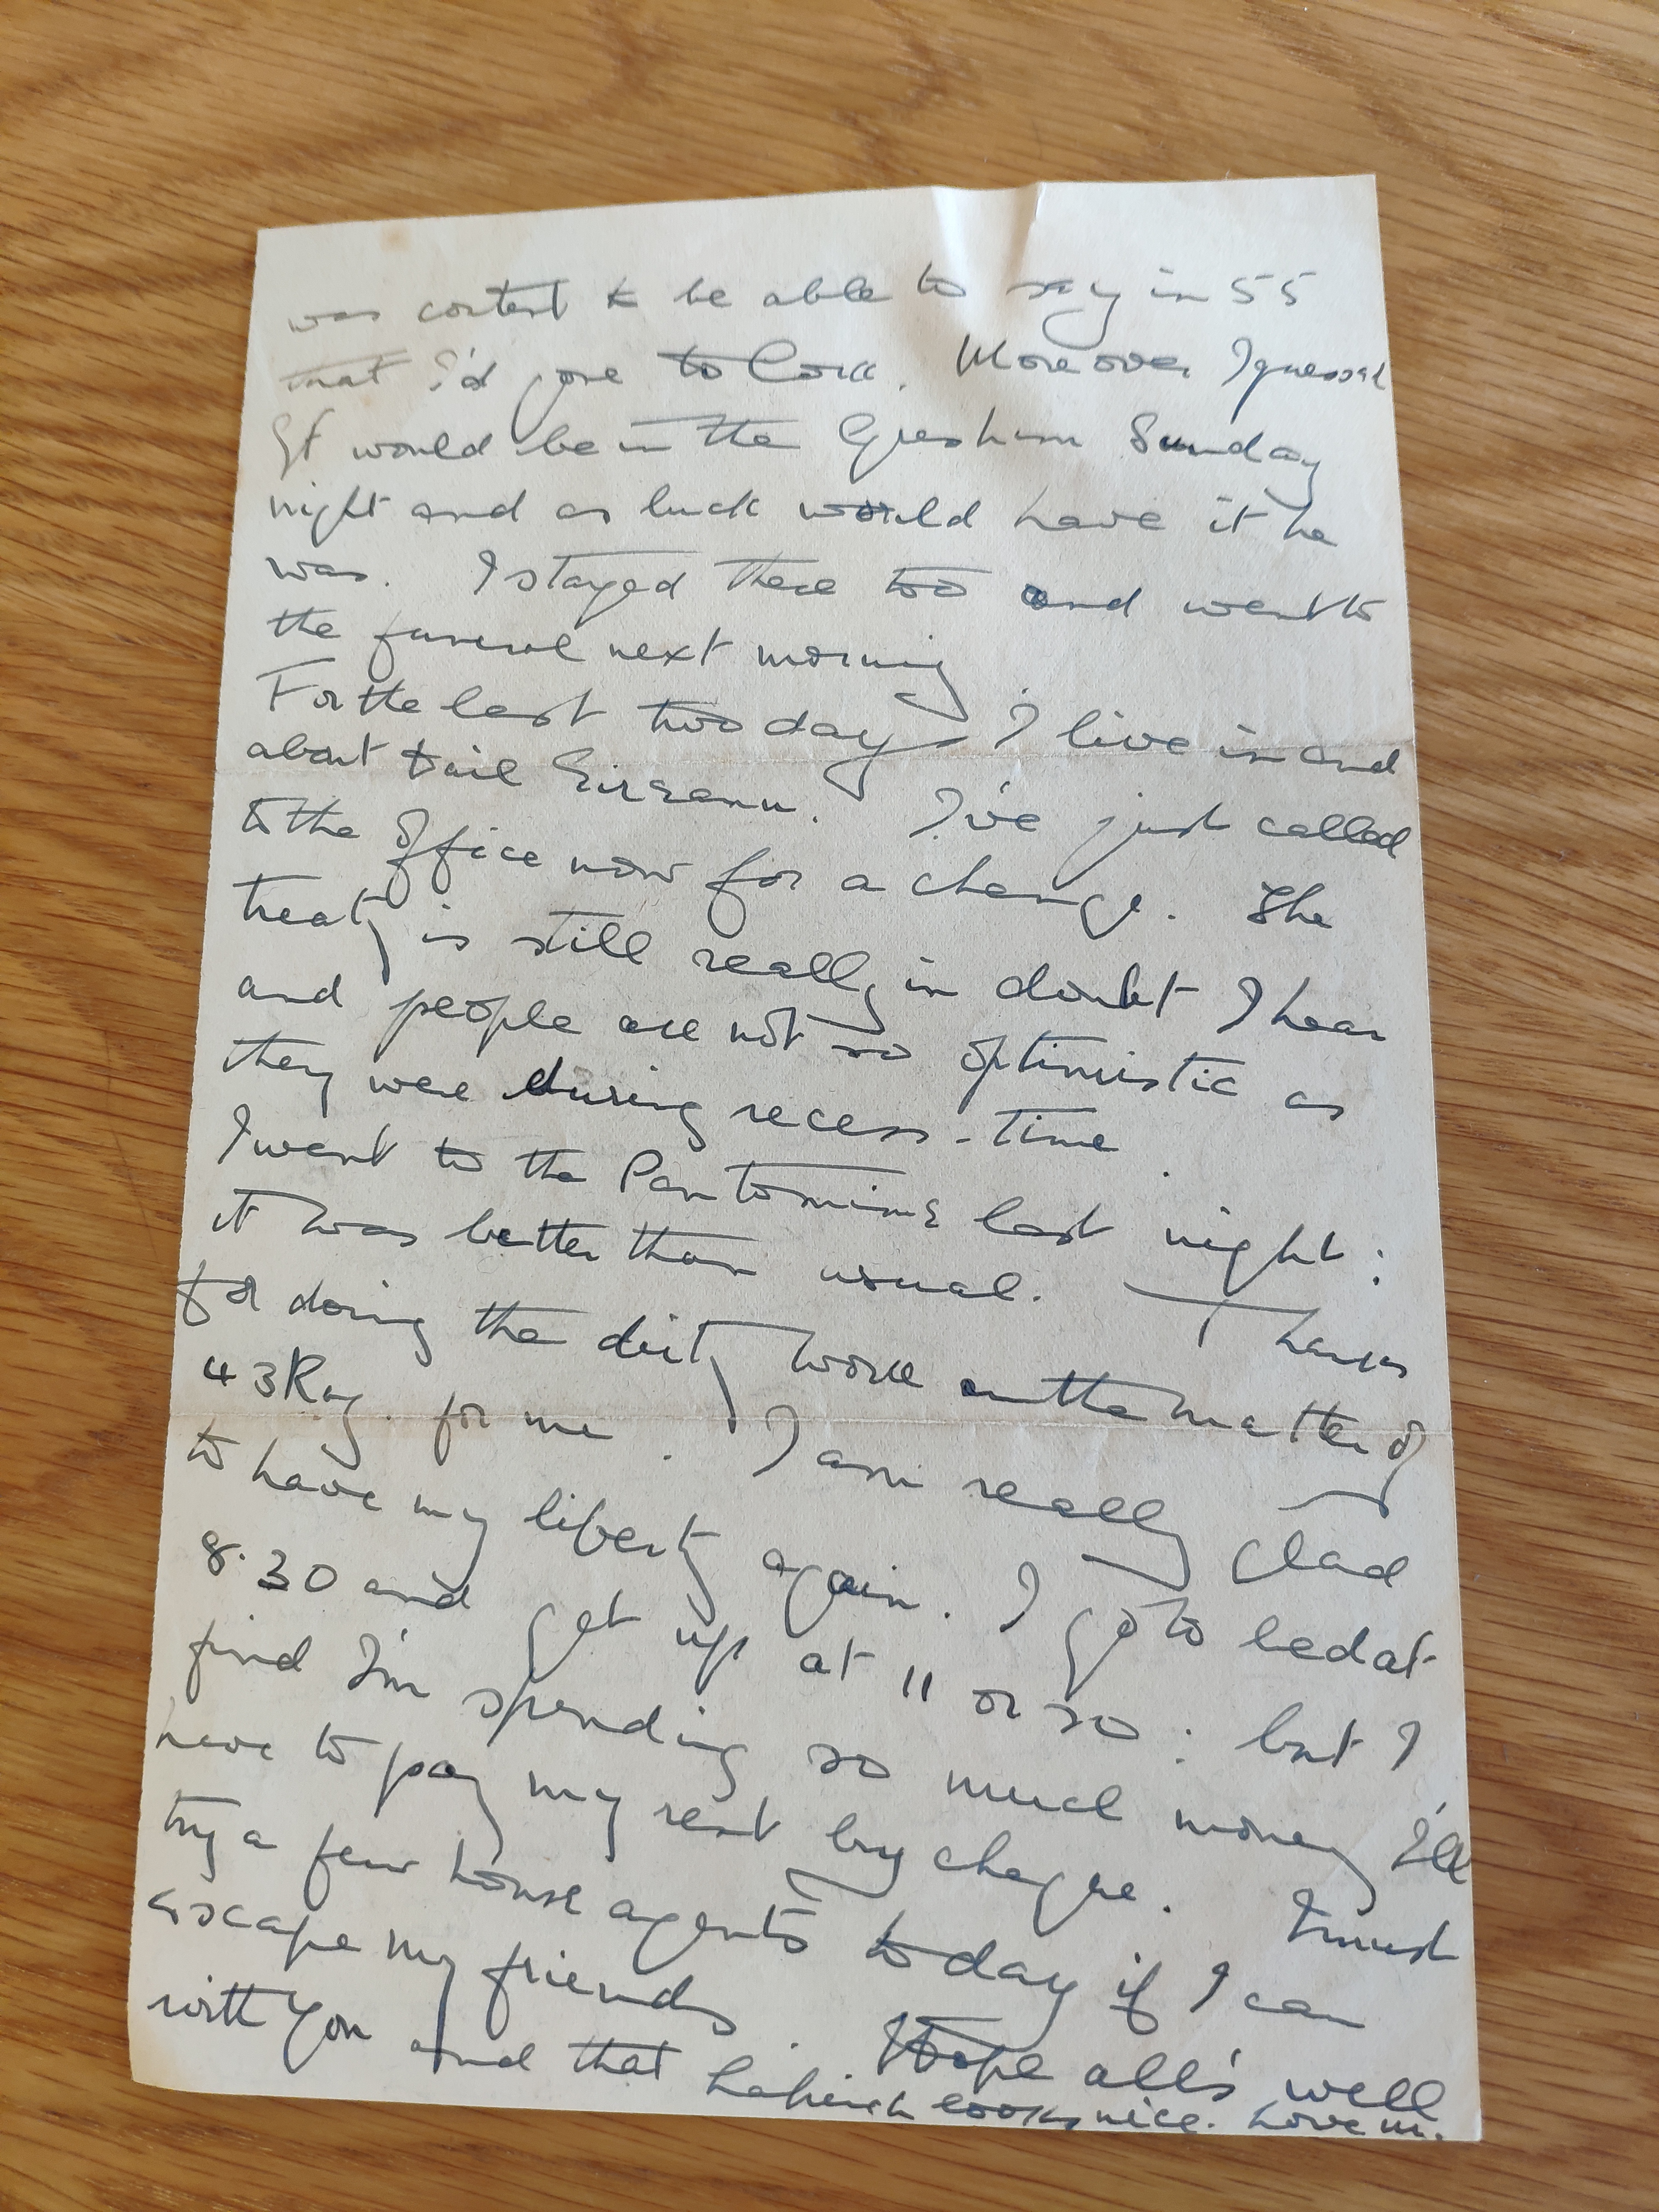 was content to be able to say in 55
that I'd gone to Cork. Moreover I guessed
would be in the Gresham Sunday
night and as luck would have it he
was. I stayed there too and went to
the funeral next morning
For the last two days I live in and
about Dail Eireann. I've just called
to the office now for a change. The
treaty is still really in doubt I hear
and people are not so optimistic as
they were during recess-time.
I went to the Pantomime last night:
it was better than usual. Thanks
for doing the dirty work on the matter of
43 Rag. for me. I am really glad
to have my liberty again. I go to bed at
8.30 and get up at 11 or so: but I
find I'm spending so much money I'll
have to pay my rent by cheque. I must
try a few house agents today if I can
escape my friends. Hope all's well
with you and that Lahinch looks nice. Love M.